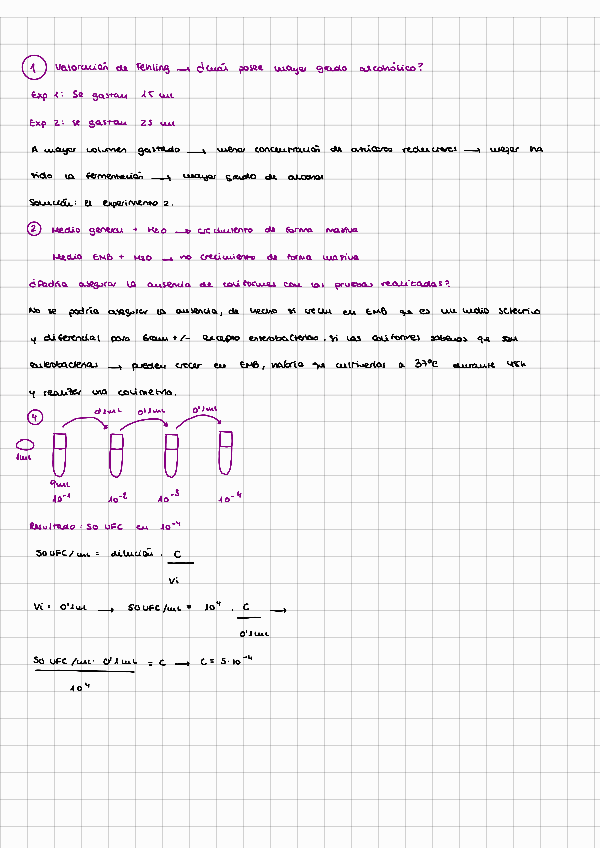 1 Valoración de Fehling → ¿cuál posee mayor grado alcohólico?
Exp 1: Se gastan 15 mL
Exp 2: se gastan 25 mL
A mayor volumen gastado → menor concentración de azúcares reductores → mejor ha
sido la fermentación → mayor grado de alcohol
Solución: El experimento 2.
2 Medio general + H2O → crecimiento de forma masiva
Medio EMB + H2O → no crecimiento de forma masiva
¿Podría asegurar la ausencia de coliformes con las pruebas realizadas?
No se podría asegurar la ausencia, de hecho si crecen en EMB que es un medio selectivo
y diferencial para Gram +/- excepto enterobacterias. Si los coliformes sabemos que son
enterobacterias → pueden crecer en EMB, habría que cultivarlos a 37ºC durante 48h
y realizar una colimetría.
4
0'1mL 0'1mL 0'1mL
1mL
9mL
10⁻¹ 10⁻² 10⁻³ 10⁻⁴
Resultado: 50 UFC en 10⁻⁴
50 UFC/mL = dilución · C
Vi
Vi = 0'1mL → 50 UFC/mL = 10⁴ · C →
0'1mL
50 UFC/mL · 0'1mL = C → C = 5·10⁻⁴
10⁴